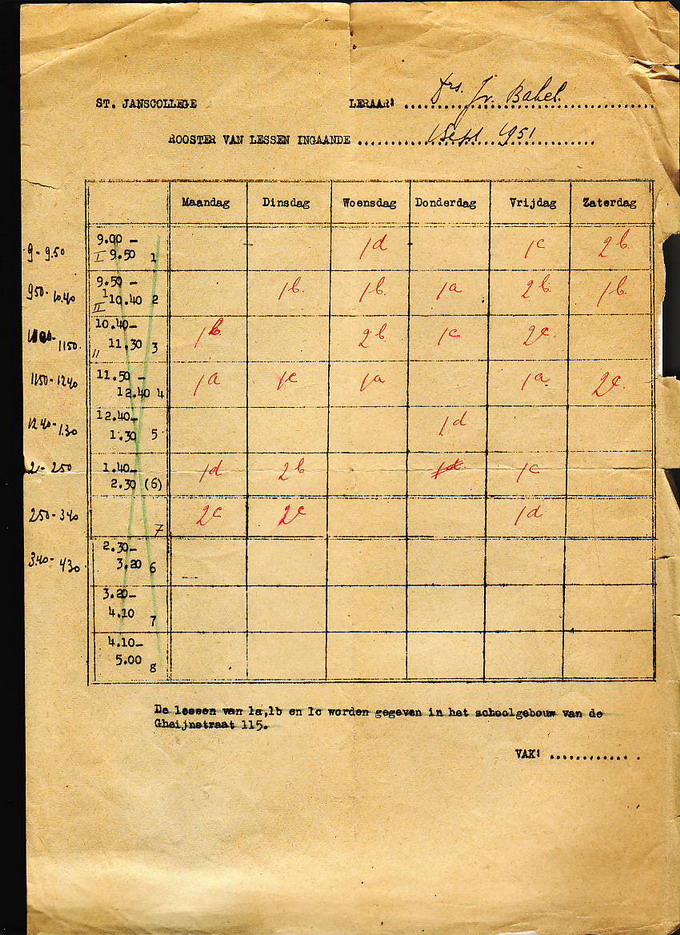 ST. JANSCOLLEGE LERAAR: Drs. Jr. Babel.
ROOSTER VAN LESSEN INGAANDE 1 Sept 1951
Maandag Dinsdag Woensdag Donderdag Vrijdag Zaterdag
9 - 9.50 9.00 - I 9.50 1 1d 1c 2b
9.50 - 10.40 9.50 - II 10.40 2 1b 1b 1a 2b 1b
1150. 10.40 - II 11.30 3 1b 2b 1c 2c
1150 - 1240 11.50 - 12.40 4 1a 1c 1a 1a 2c
1240 - 1.30 12.40 - 1.30 5 1d
2 - 250 1.40 - 2.30 (6) 1d 2b 1d 1c
250 - 340 7 2c 2c 1d
3.40 - 430 2.30 - 3.20 6
3.20 - 4.10 7
4.10 - 5.00 8
De lessen van 1a,1b en 1c worden gegeven in het schoolgebouw van de
Gheijnstraat 115.
VAK: